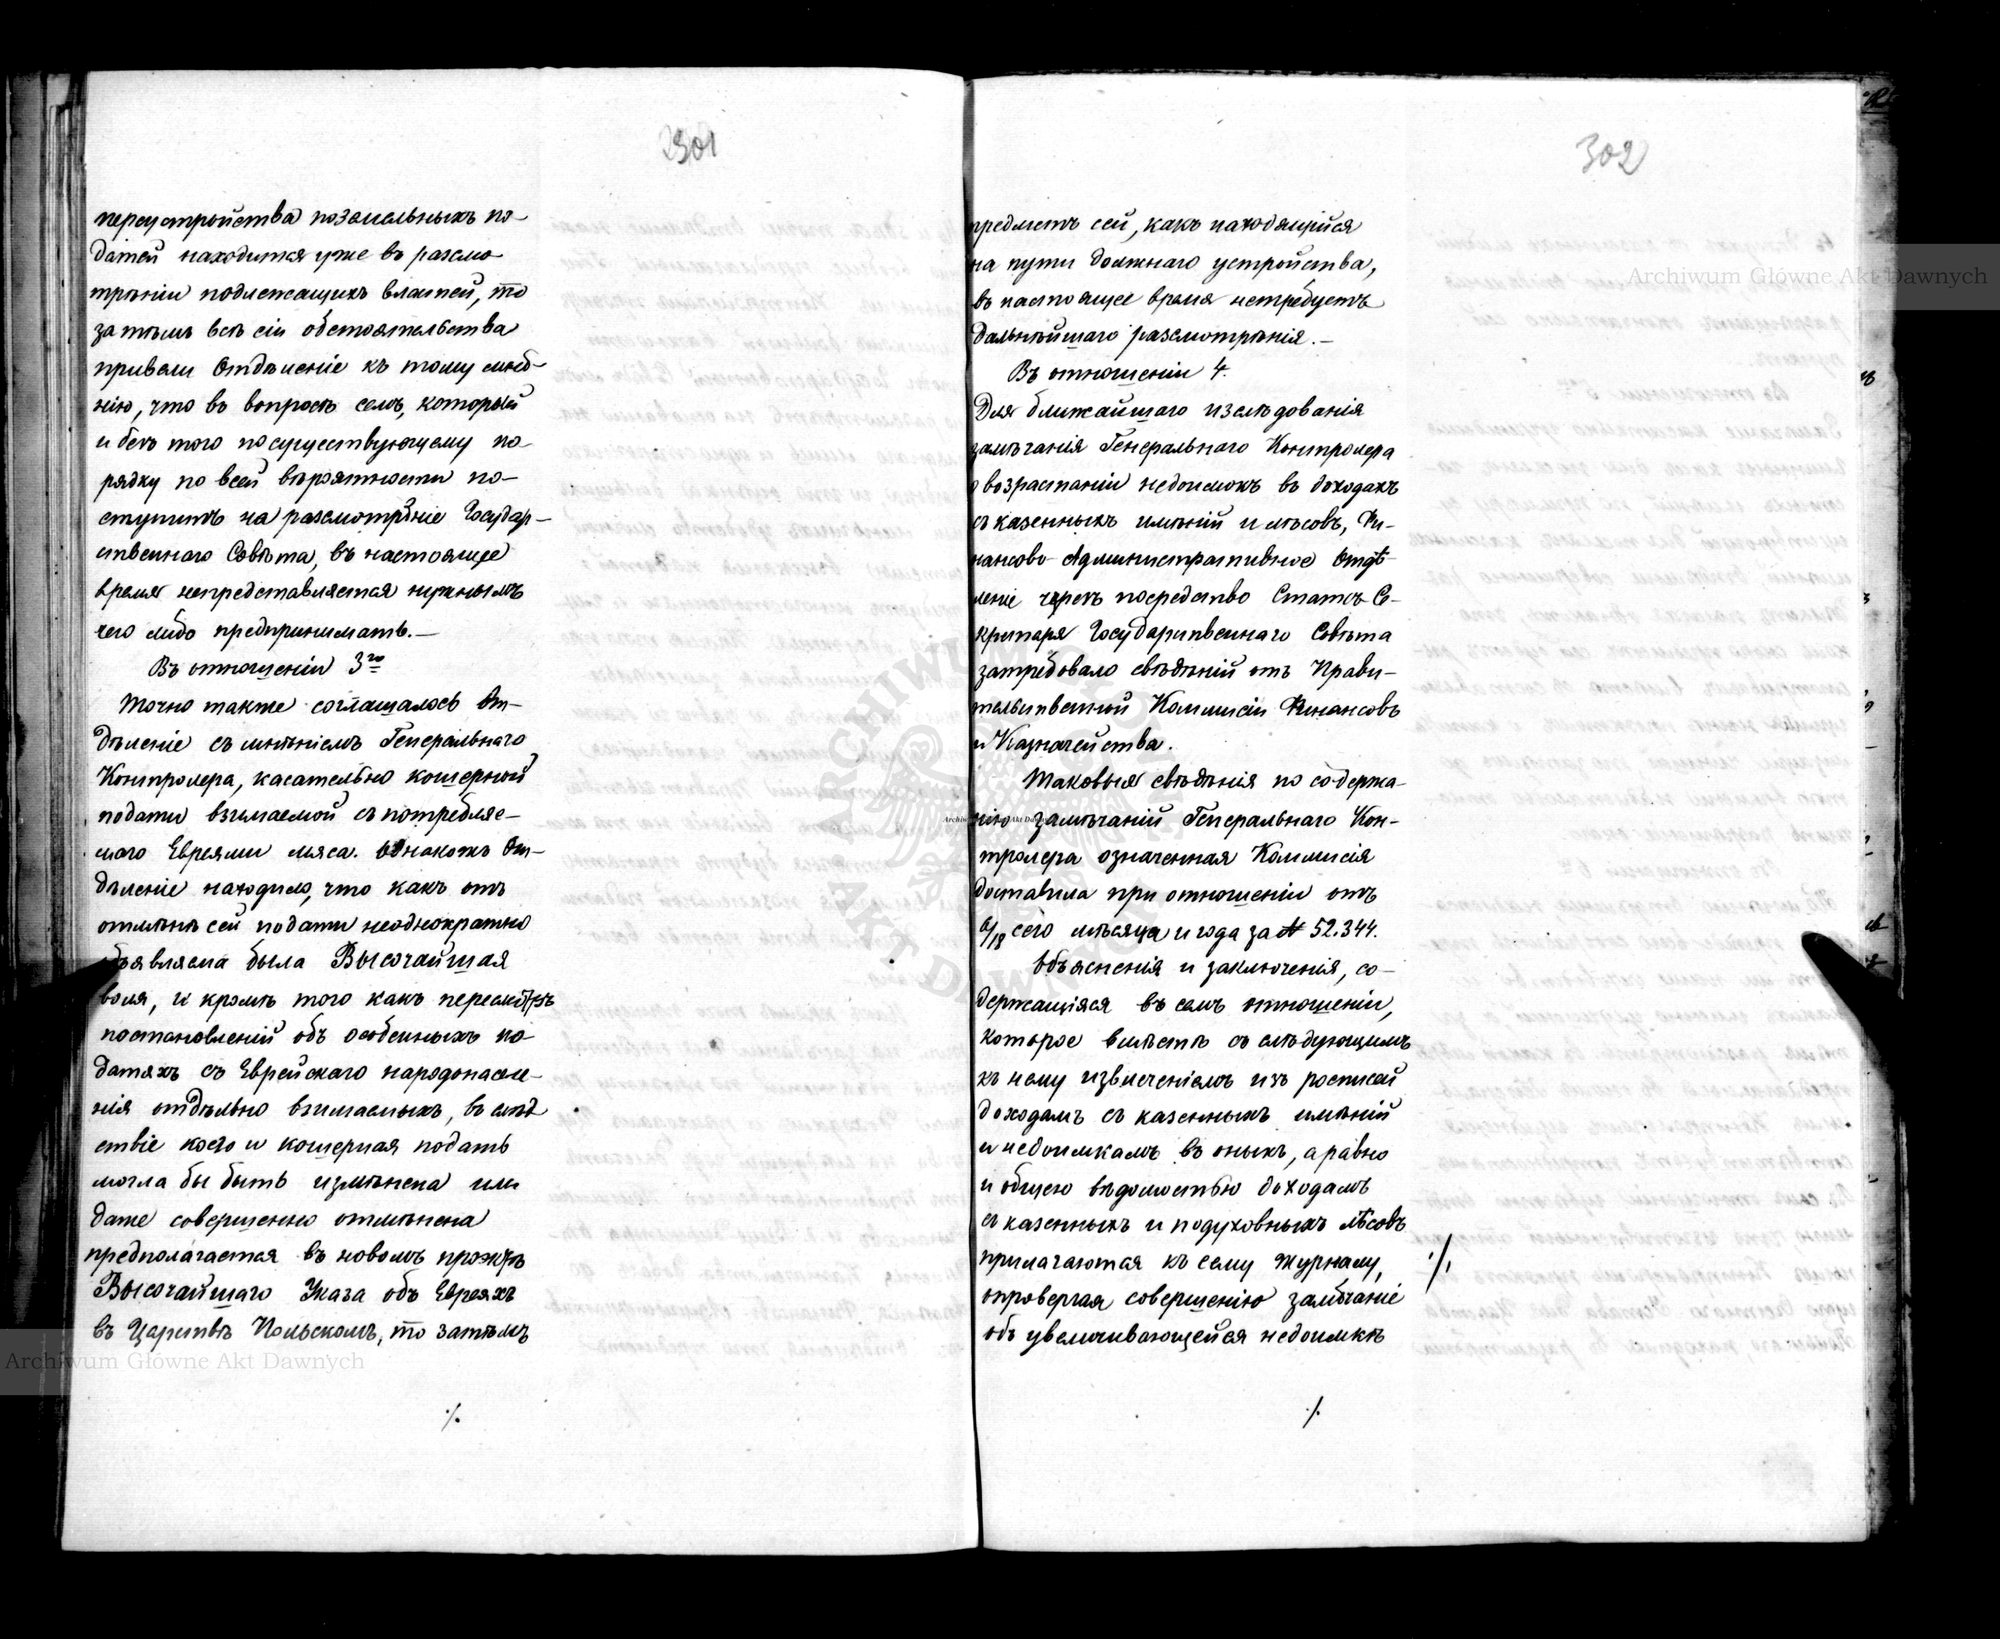 301
переустройства поземельныхъ по-
датей находится уже въ разсмо-
трѣніи подлежащихъ властей, то
за тѣмъ всѣ сіи обстоятельства
привели Отдѣленіе къ тому мнѣ-
нію, что въ вопросѣ семъ, который
и безъ того по существующему по-
рядку по всей вѣроятности по-
ступитъ на разсмотрѣніе Государ-
ственнаго Совѣта, въ настоящее
время непредставляется нужнымъ
чего либо предпринимать.—
Въ отношеніи 3го
Точно также соглашалось От-
дѣленіе съ мнѣніемъ Генеральнаго
Контролера, касательно кошерной
подати взимаемой съ потребляе-
маго Евреями мяса. Однакожъ От-
дѣленіе находило, что какъ отъ
отмѣнѣ сей подати неоднократно
объявляема была Высочайшая
воля, и кромѣ того какъ пересмотръ
постановленій объ особенныхъ по-
датяхъ съ Еврейскаго народонаселе-
нія отдѣльно взимаемыхъ, въ слѣд
ствіе коего и кошерная подать
могла бы быть измѣнена или
даже совершенно отмѣнена
предполагается въ новомъ проэктѣ
Высочайшаго Указа объ Евреяхъ
въ Царствѣ Польскомъ, то затѣмъ
./.
302
предметъ сей, какъ находящійся
на пути должнаго устройства,
въ настоящее время нетребуетъ
дальнѣйшаго разсмотрѣнія.—
Въ отношеніи 4.
Для ближайшаго изслѣдованія
замѣчанія Генеральнаго Контролера
о возрастаніи недоимокъ въ доходахъ
съ казенныхъ имѣній и лѣсовъ, Фи-
нансово-Административное Отдѣ-
леніе чрезъ посредство Статсъ-Се-
кретаря Государственнаго Совѣта
затребовало свѣдѣній отъ Прави-
тельственной Коммисіи Финансовъ
и Казначейства.
Таковыя свѣдѣнія по содержа-
нію замѣчаній Генеральнаго Кон-
тролера означенная Коммисія
доставила при отношеніи отъ
6/18 сего мѣсяца и года за № 52.344.
Объясненія и заключенія, со-
держащіяся въ семъ отношеніи,
которое вмѣстѣ съ слѣдующимъ
къ нему извлеченіемъ изъ росписей
доходамъ съ казенныхъ имѣній
и недоимкамъ въ оныхъ, а равно
и общею вѣдомостью доходамъ
съ казенныхъ и подуховныхъ лѣсовъ
прилагаются къ сему журналу, ./.
опровергая совершенно замѣчаніе
объ увеличивающейся недоимкѣ
./.
Archiwum Główne Akt Dawnych
Archiwum Główne Akt Dawnych